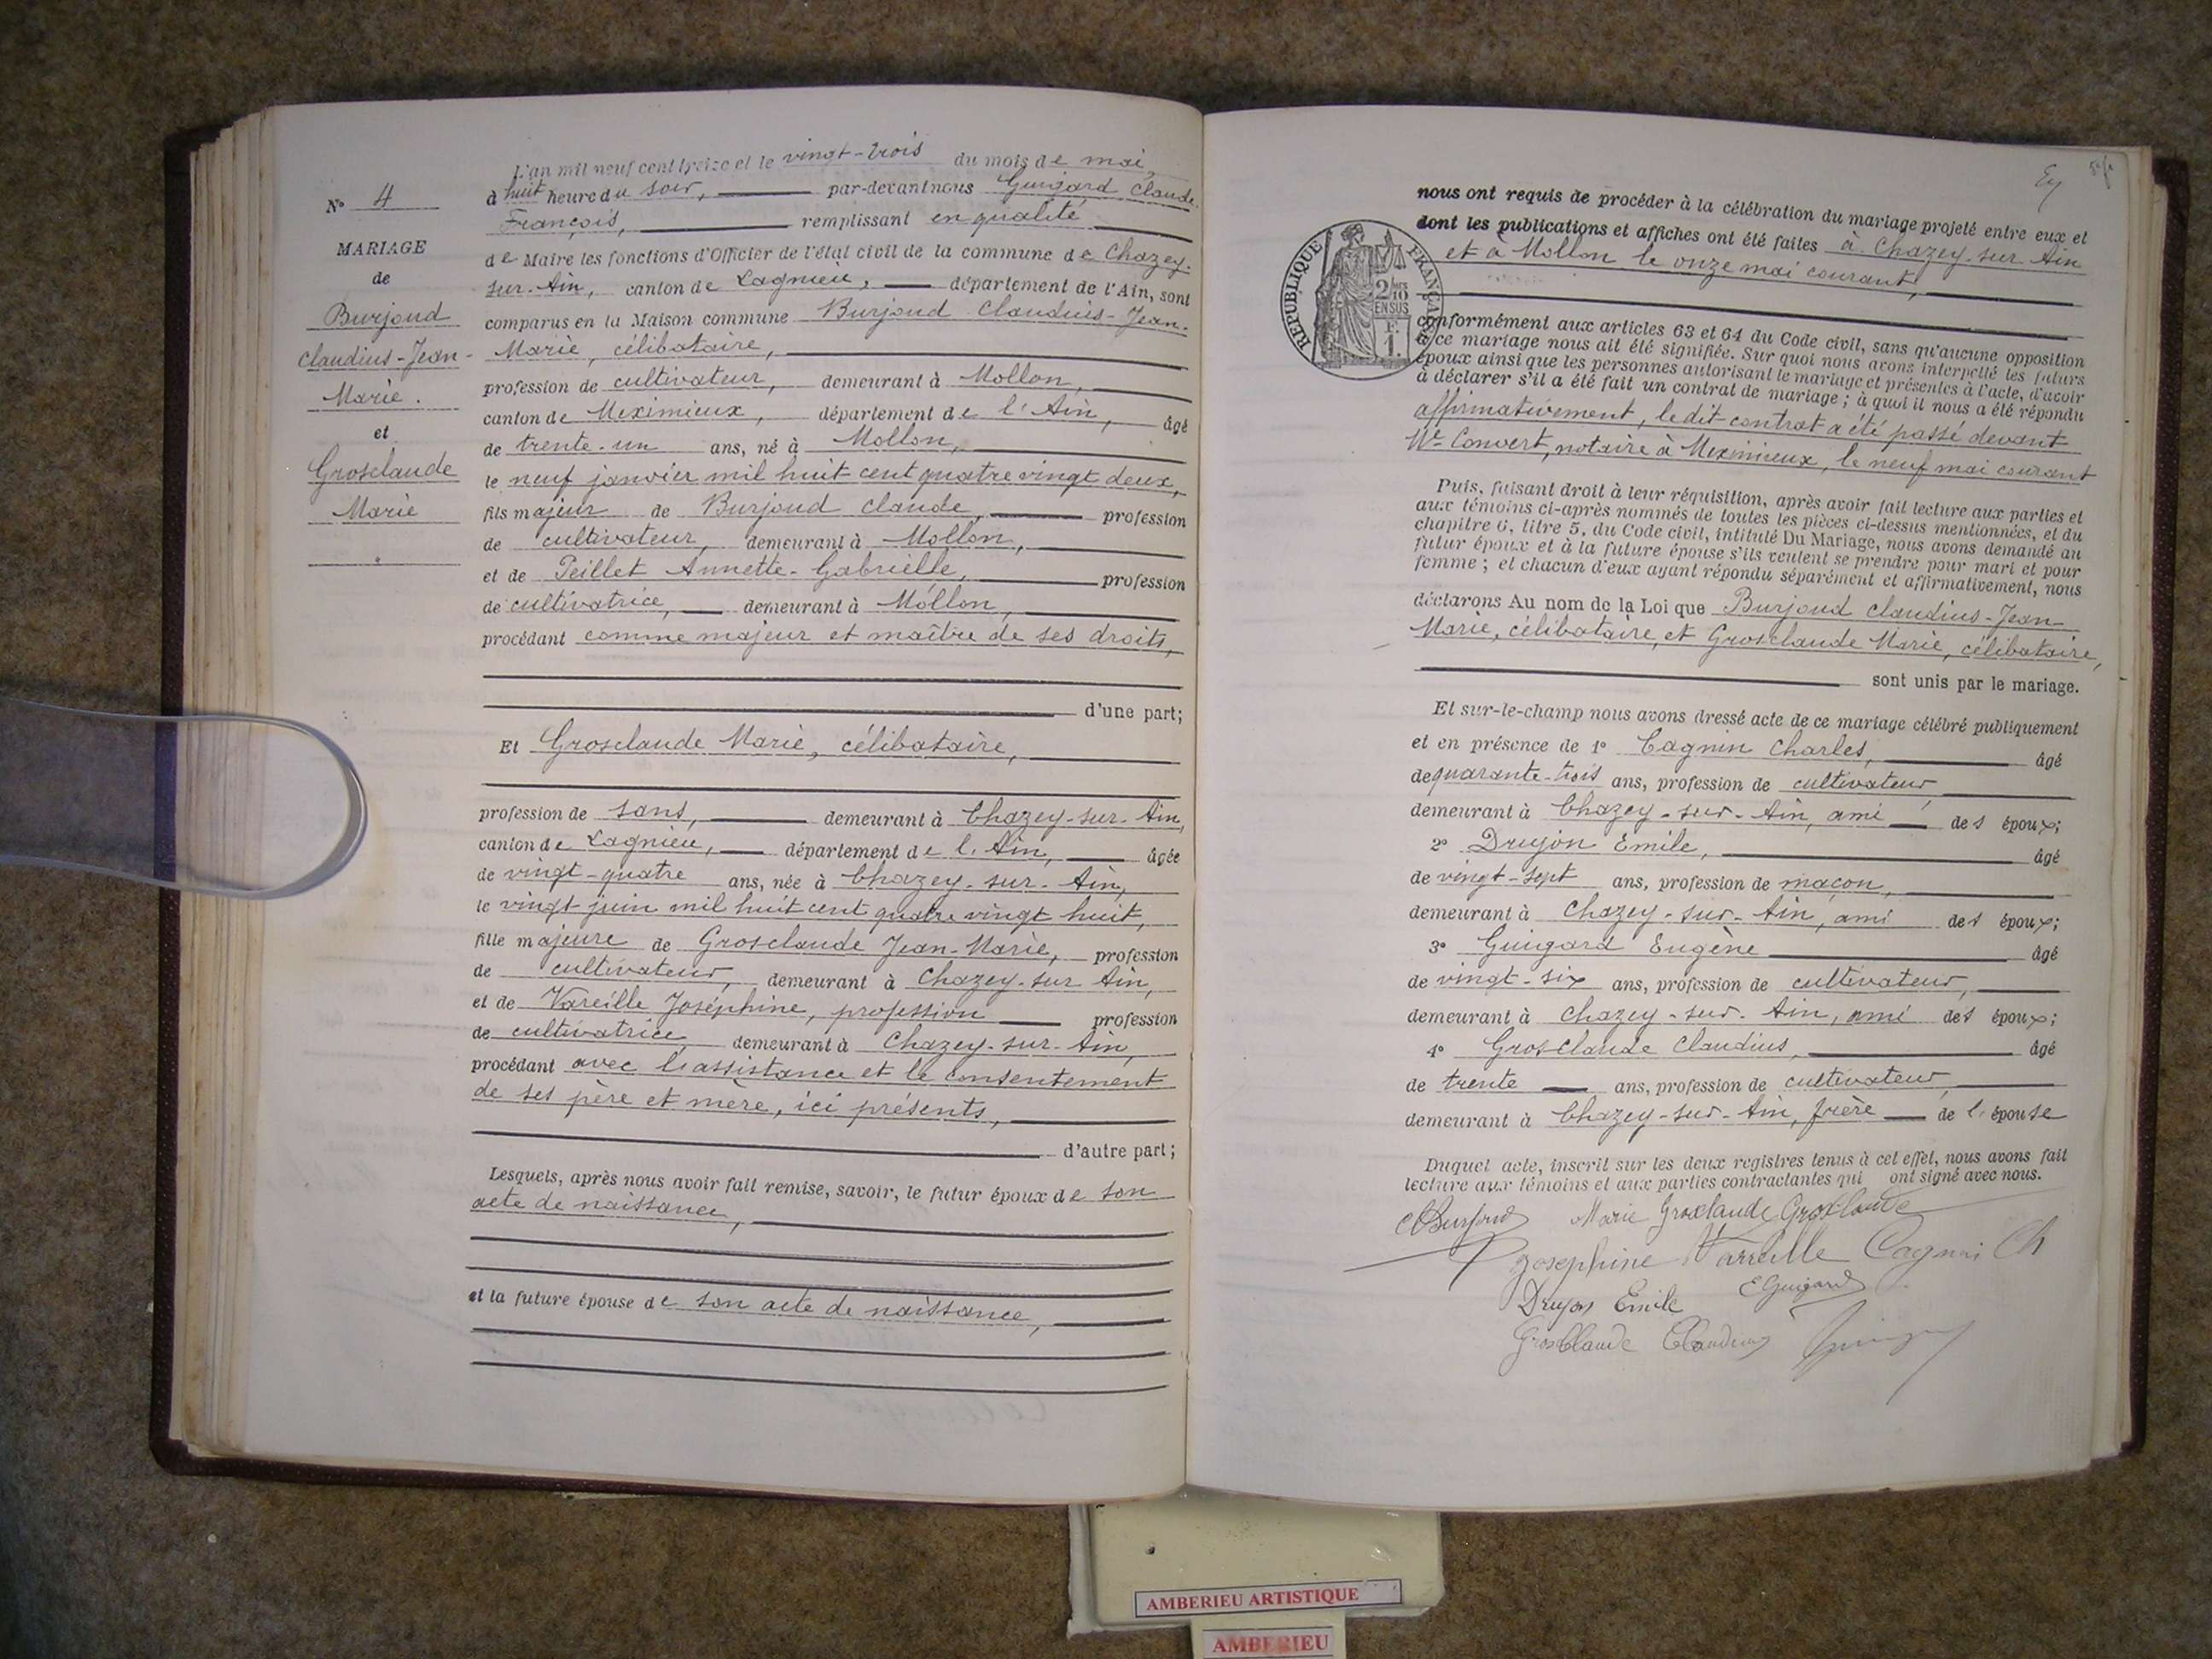 N° 4
MARIAGE
de
Burjoud
Claudius-Jean-
Marie.
et
Grosclaude
Marie
L'an mil neuf cent treize et le vingt-trois du mois de mai,
à huit heure du soir, par-devant nous Guigard Claude
François, remplissant en qualité
de Maire les fonctions d'Officier de l'état civil de la commune de Chazey-
sur-Ain, canton de Lagnieu, département de l'Ain, sont
comparus en la Maison commune Burjoud Claudius-Jean-
Marie, célibataire,
profession de cultivateur, demeurant à Mollon,
canton de Meximieux, département de l'Ain, âgé
de trente-un ans, né à Mollon,
le neuf janvier mil huit cent quatre vingt deux,
fils majeur de Burjoud Claude, profession
de cultivateur, demeurant à Mollon,
et de Peillet Annette-Gabrielle, profession
de cultivatrice, demeurant à Mollon,
procédant comme majeur et maître de ses droits,
d'une part;
Et Grosclaude Marie, célibataire,
profession de sans, demeurant à Chazey-sur-Ain,
canton de Lagnieu, département de l'Ain, âgée
de vingt-quatre ans, née à Chazey-sur-Ain,
le vingt juin mil huit cent quatre vingt huit,
fille majeure de Grosclaude Jean-Marie, profession
de cultivateur, demeurant à Chazey-sur Ain,
et de Vareille Joséphine, profession profession
de cultivatrice, demeurant à Chazey-sur-Ain,
procédant avec l'assistance et le consentement
de ses père et mère, ici présents,
d'autre part;
Lesquels, après nous avoir fait remise, savoir, le futur époux de son
acte de naissance,
et la future épouse de son acte de naissance,
nous ont requis de procéder à la célébration du mariage projeté entre eux et
dont les publications et affiches ont été faites à Chazey-sur-Ain
et à Mollon le onze mai courant,
REPUBLIQUE FRANÇAISE
2/10
EN SUS
F.
1.
conformément aux articles 63 et 64 du Code civil, sans qu'aucune opposition
à ce mariage nous ait été signifiée. Sur quoi nous avons interpellé les futurs
époux ainsi que les personnes autorisant le mariage et présentes à l'acte, d'avoir
à déclarer s'il a été fait un contrat de mariage; à quoi il nous a été répondu
affirmativement, ledit contrat a été passé devant
Me Convert, notaire à Meximieux, le neuf mai courant
Puis, faisant droit à leur réquisition, après avoir fait lecture aux parties et
aux témoins ci-après nommés de toutes les pièces ci-dessus mentionnées, et du
chapitre 6, titre 5, du Code civil, intitulé Du Mariage, nous avons demandé au
futur époux et à la future épouse s'ils veulent se prendre pour mari et pour
femme; et chacun d'eux ayant répondu séparément et affirmativement, nous
déclarons Au nom de la Loi que Burjoud Claudius-Jean-
Marie, célibataire, et Grosclaude Marie, célibataire,
sont unis par le mariage.
Et sur-le-champ nous avons dressé acte de ce mariage célébré publiquement
et en présence de 1° Cagnin Charles, âgé
de quarante-trois ans, profession de cultivateur,
demeurant à Chazey-sur-Ain, ami des époux;
2° Drujon Emile, âgé
de vingt-sept ans, profession de maçon,
demeurant à Chazey-sur-Ain, ami des époux;
3° Guigard Eugène âgé
de vingt-six ans, profession de cultivateur,
demeurant à Chazey-sur-Ain, ami des époux;
4° Grosclaude Claudius, âgé
de trente ans, profession de cultivateur,
demeurant à Chazey-sur-Ain, frère de l'épouse
Duquel acte, inscrit sur les deux registres tenus à cet effet, nous avons fait
lecture aux témoins et aux parties contractantes qui ont signé avec nous.
Burjoud Marie Grosclaude Grosclaude
Josephine Varreille Cagnin Ch
Drujon Emile E Guigard
Grosclaude Claudius
AMBERIEU ARTISTIQUE
AMBERIEU